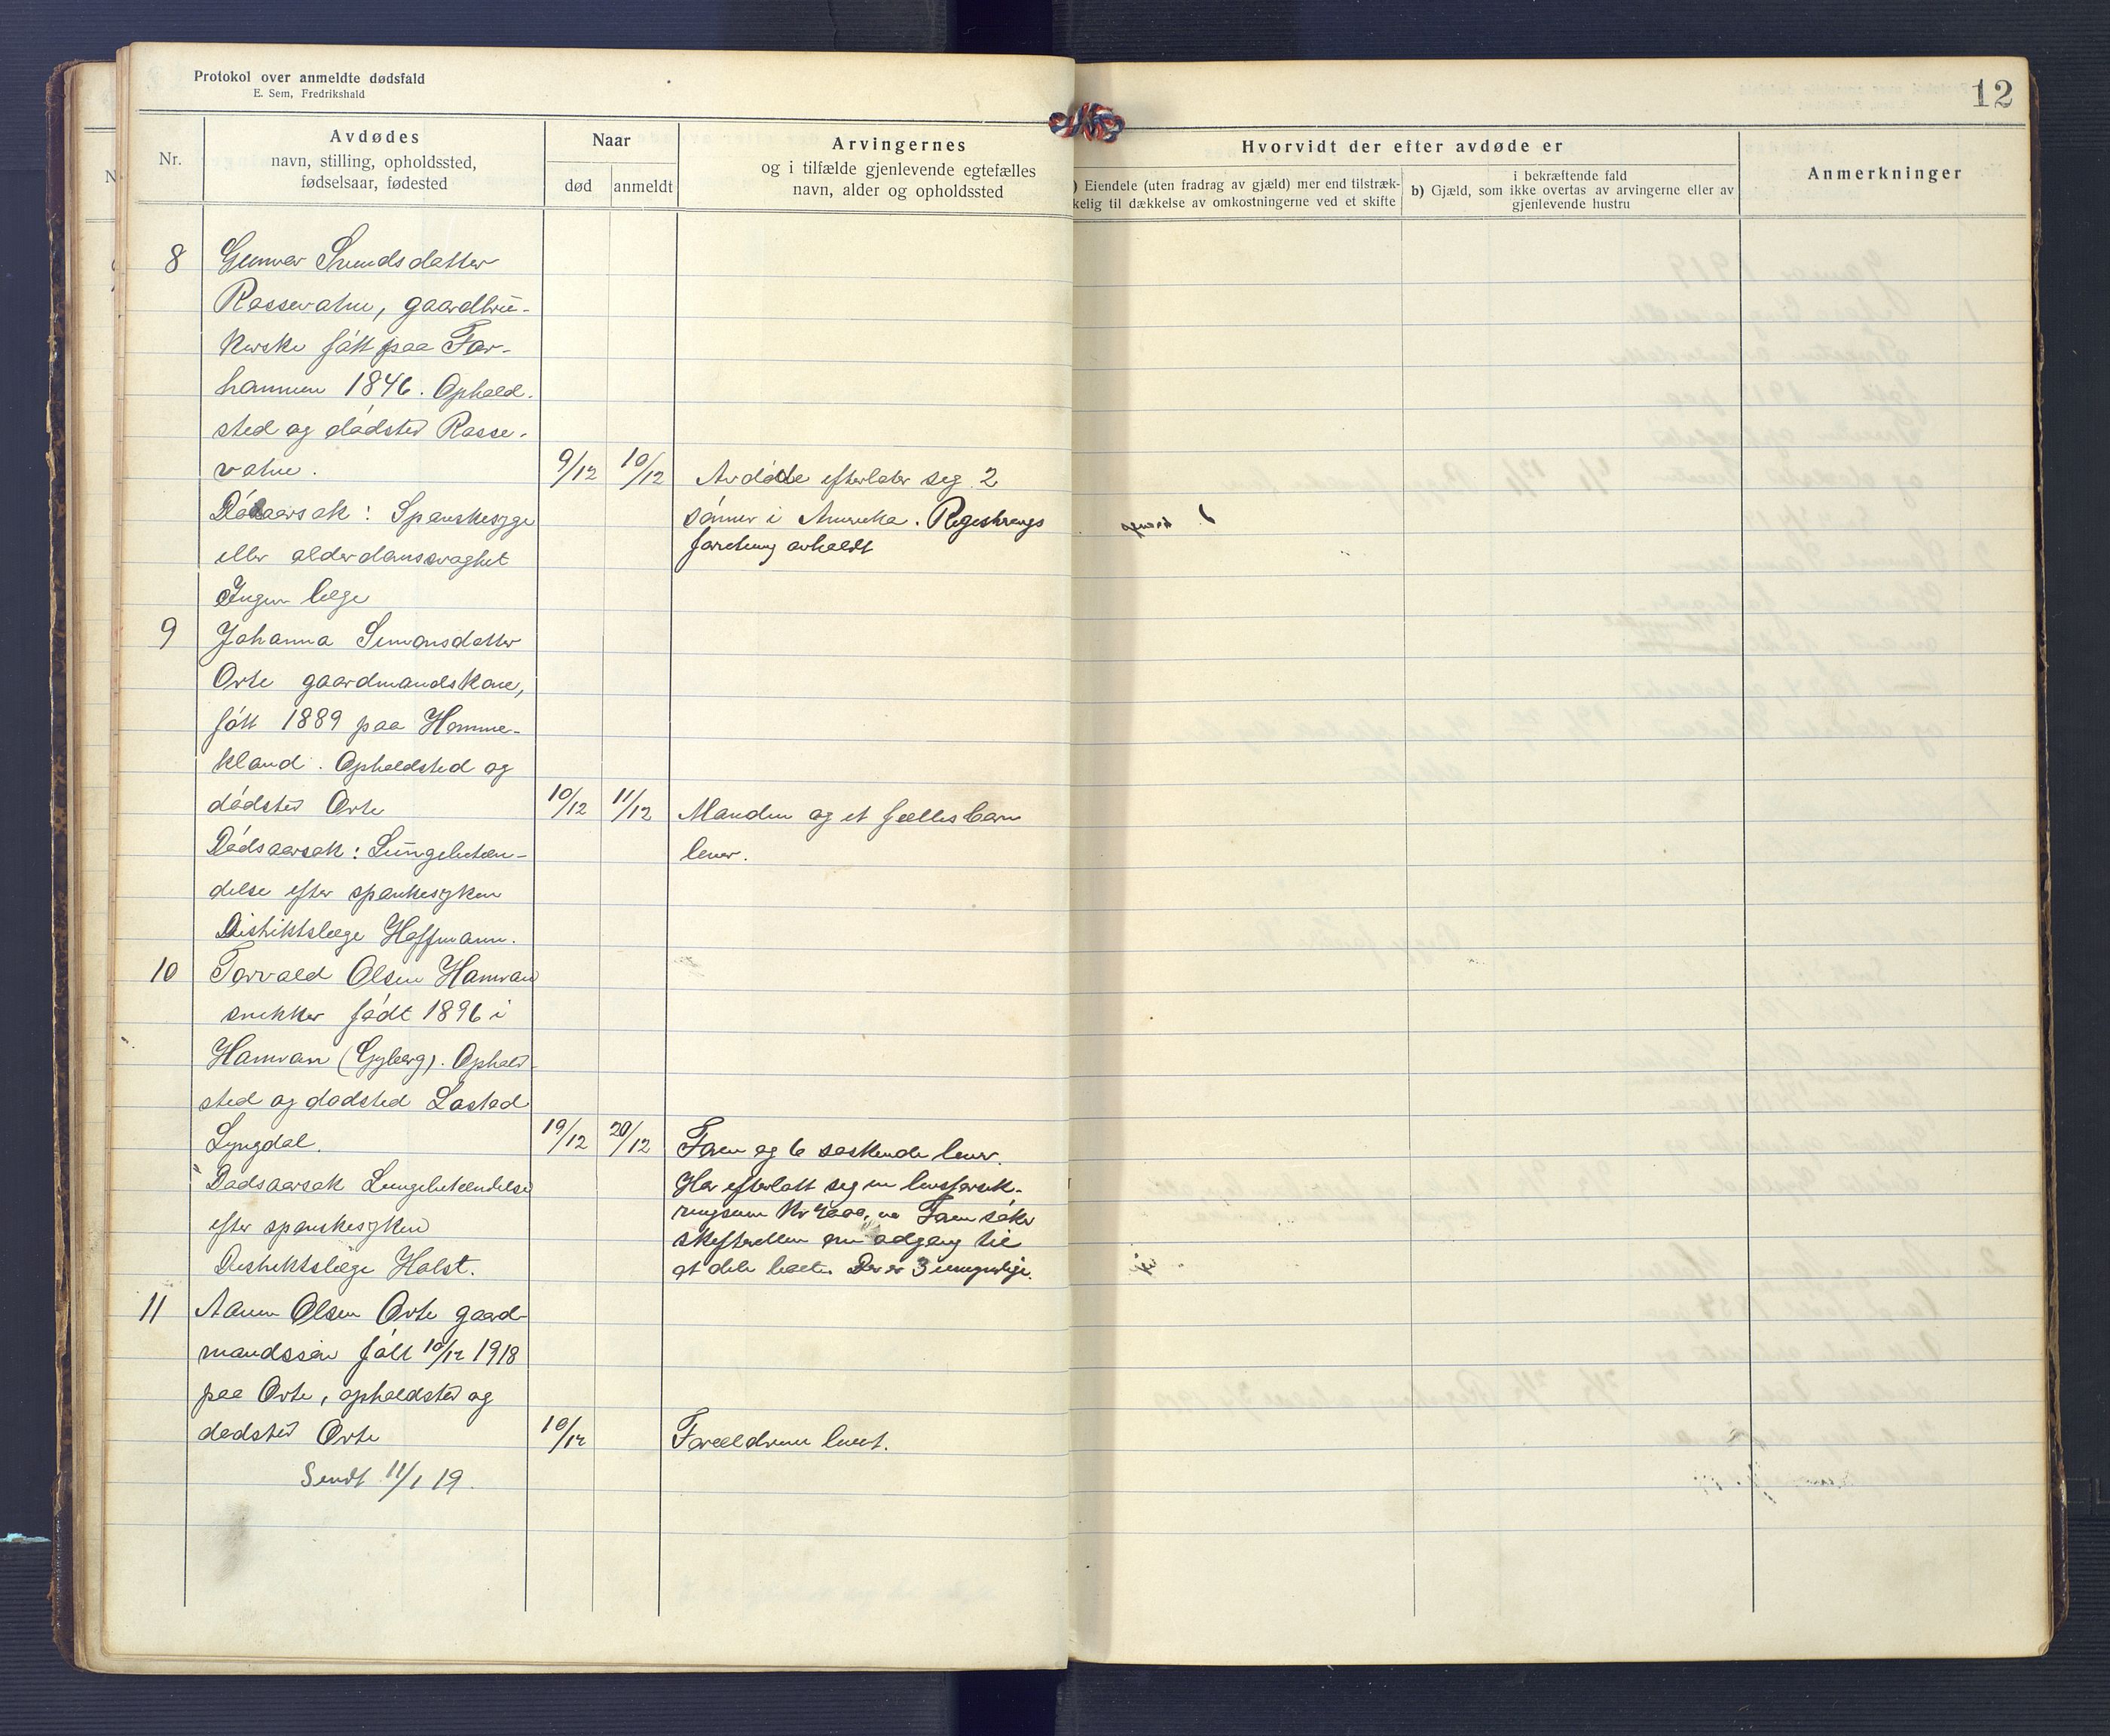 Protokol over anmeldte dødsfald
E. Sem, Fredrikshald
12
Nr.
Avdødes
navn, stilling, opholdssted,
fødselsaar, fødested
Naar
død
anmeldt
Arvingernes
og i tilfælde gjenlevende egtefælles
navn, alder og opholdssted
Hvorvidt der efter avdøde er
) Eiendele (uten fradrag av gjæld) mer end tilstræk-
kelig til dækkelse av omkostningerne ved et skifte
i bekræftende fald
b) Gjæld, som ikke overtas av arvingerne eller av
gjenlevende hustru
Anmerkninger
8
Gunvor Svendsdatter
Rossevatne, gaardbru-
kerske føtt paa Tor-
hommen 1846. Ophold.
sted og dødsted Rosse-
vatne.
9/12 10/12
Avdøde efterlater seg 2
Dødsaarsak: Spanskesyge
sønner i Amerika. Regestrengs
eller alderdomssvaghet
forretning avholdt
Ingen læge
9
Johanna Simonsdatter
Orte gaardmandskone,
føtt 1889 paa Homme-
kland. Opholdsted og
dødsted Orte
10/12 11/12
Manden og et fælles barn
Dødsaarsak: Lungebeten-
lever.
delse efter spanskesyken
Distriktslæge Hoffmann.
10
Torvald Olsen Hamran
snekker født 1896 i
Hamran (Gyberg). Ophold-
sted og dødsted Losted
Lyngdal.
19/12 20/12
Faren og 6 søskende lever.
Dødsaarsak Lungebetendelse
Har efterlatt seg en livsforsik-
efter spanskesyken
ringssum Kr 4000, Faren søker
skifteretten om adgang til
Distriktslæge Holst.
at dele boet. Der er 3 umyndige.
11
Aanen Olsen Orte gaard-
mandssøn føtt 10/12 1918
paa Orte, opholdsted og
dødsted Orte
10/12
Forældrene lever.
Sendt 11/1 19.